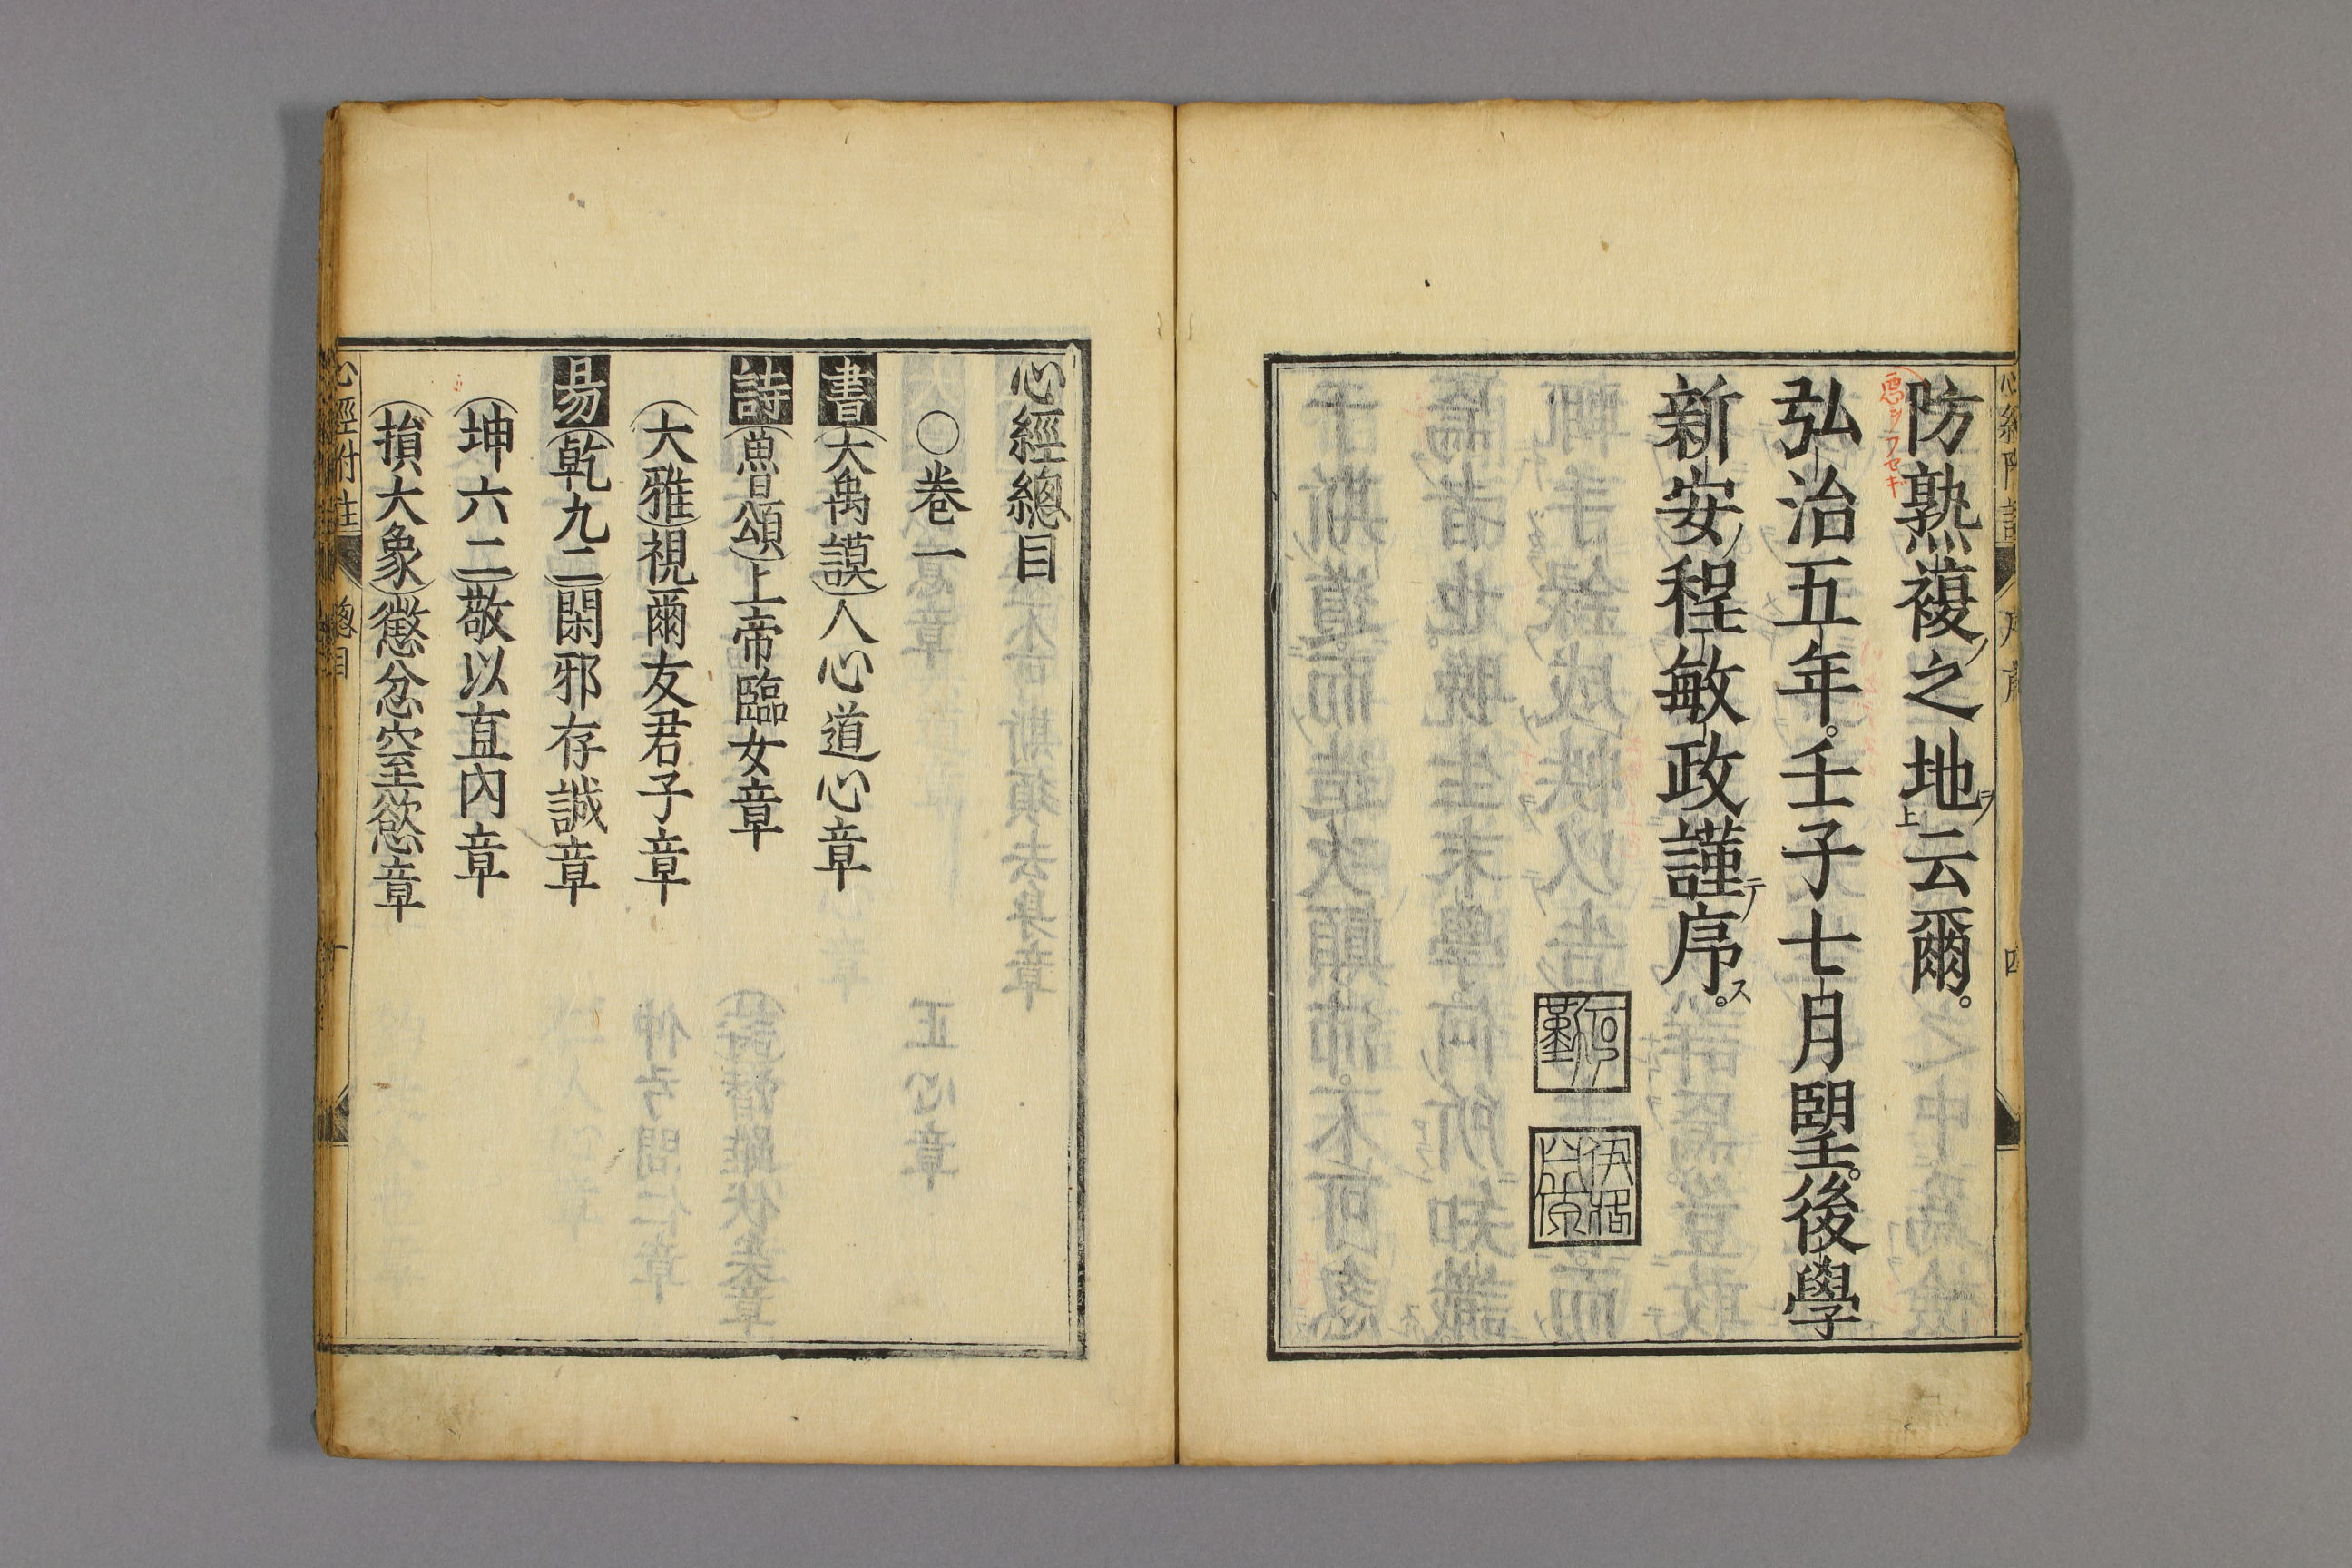 防熟複之地云爾。
弘治五年。壬子七月朢。後學
新安程敏政謹序。
伊洛
心經總目
○卷一
書(大禹謨)人心道心章
詩(魯頌)上帝臨女章
(大雅)視爾友君子章
易(乾九二)閑邪存誠章
(坤六二)敬以直內章
(損大象)懲忿窒慾章
心經附註 總目 一